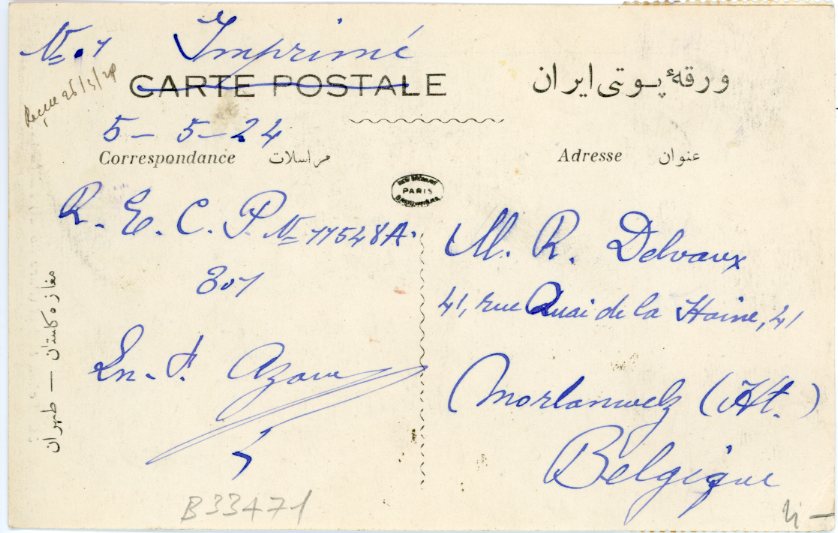 No. 1 Imprimé
Reçu 26/5/24
CARTE POSTALE ورقهٔ پوتی ایران
5 - 5 - 24
Correspondance مراسلات
Adresse عنوان
PARIS
R. E. C. P. No 11548A.
301
M. R. Delvaux
41, rue Quai de la Haine, 41
Morlanwelz (Ht.)
Belgique
طهران
B33471
4 -